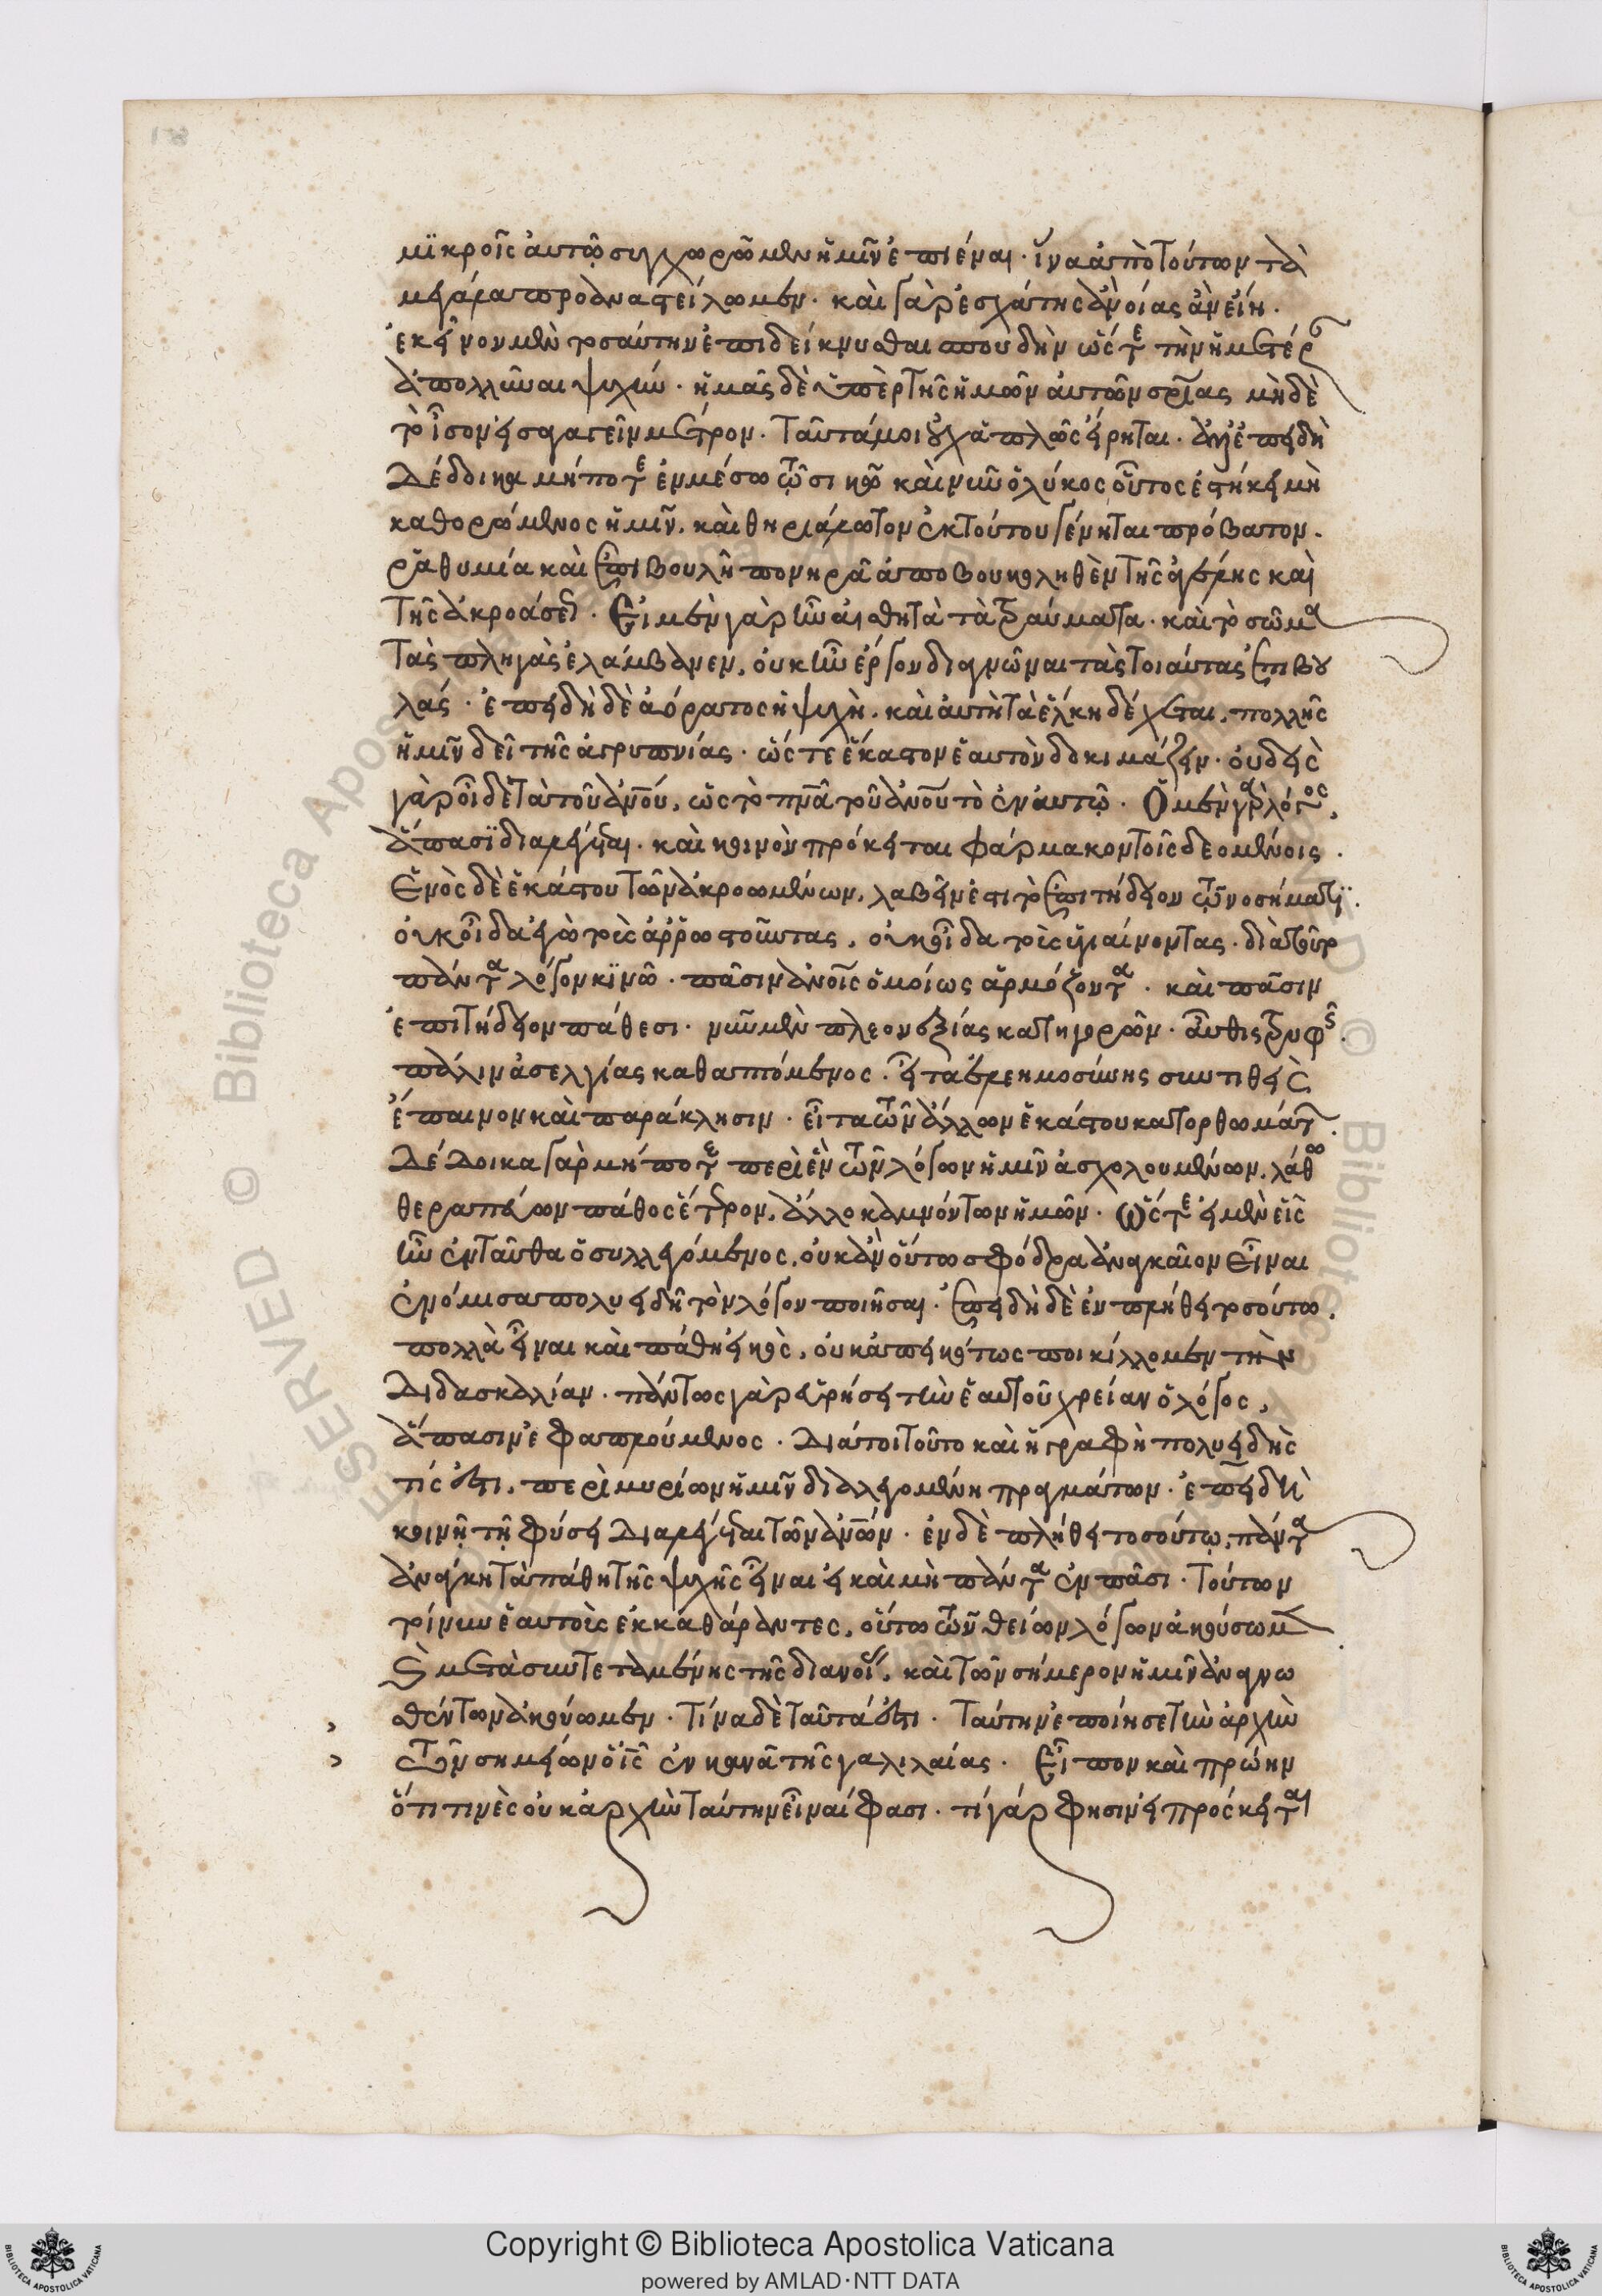 μϊκροῖς αὐτῶ συγχωρῶμεν ἡμῖν ἐπιέναι · ἵνα ἀπὸ τούτων τὰ
μεγάλα προαναστείλωμεν · καὶ γὰρ ἐσχάτης ἀνοίας ἂν εἴη ·
ἐκεῖνον μὲν τοσαύτην ἐπιδείκνυσθαι σπουδὴν ὥστε τὴν ἡμετέρ
ἀπολλῦναι ψυχήν · ἡμᾶς δὲ ὑπὲρ τῆς ἡμῶν αὐτῶν σρίας μὴ δὲ
τὸ ἴσον εἰσαγαγεῖν μέτρον · ταῦτά μοι οὐχ ἁπλῶς εἴρηται · ἀλλ' ἐπειδὴ
δέδοικα μήποτε ἐν μέσω τῶ σηκῶ καὶ νῦν ὁ λύκος οὗτος ἑστήκει μὴ
καθορώμενος ἡμῖν, καὶ θηριάλωτον ἐκ τούτου γένηται πρόβατον.
ῥαθυμία καὶ ἐπιβουλῆ πονηρᾶ ἀποβουκοληθὲν τῆς ἀγέλης καὶ
τῆς ἀκροάσεως · Εἰ μὲν γὰρ ἦν αἰσθητὰ τὰ τραύματα · καὶ τὸ σῶμα
τὰς πληγὰς ἐλάμβανεν, οὐκ ἦν ἔργον διαγνῶναι τὰς τοιαύτας ἐπιβου
λάς · ἐπειδὴ δὲ ἀόρατος ἡ ψυχὴ, καὶ αὐτὴ τὰ ἕλκη δέχεται, πολλῆς
ἡμῖν δεῖ τῆς ἀγρυπνίας · ὥς τε ἕκαστον ἑαυτὸν δοκιμάζειν · οὐδεὶς
γὰρ οἶδε τὰ τοῦ ἀνου, ὡς τὸ πνα τοῦ ἀνου τὸ ἐν αὐτῶ · Ὁ μὲν γὰρ λόγος,
ἅπασϊ διαλέγεται · καὶ κοινὸν πρόκειται φάρμακον τοῖς δεομένοις ·
Ἑνὸς δὲ ἑκάστου τῶν ἀκροωμένων, λαβεῖν ἐστι τὸ ἐπιτήδειον τῶ νοσήματϊ.
οὐκ οἶδα ἐγὼ τοὺς ἀρρωστοῦντας, οὐκ οἶδα τοὺς ὑγιαίνοντας · διὰ τοῦτο
πάντα λόγον κϊνῶ · πᾶσιν ἀνοις ὁμοίως ἁρμόζοντα · καὶ πᾶσιν
ἐπιτήδειον πάθεσι · νῦν μὲν πλεονεξίας κατηγορῶν · αὖθις τρυφῆς.
πάλιν ἀσελγίας καθαπτόμενος · εἶτα ἐλεημοσύνης συντιθεὶς
ἔπαινον καὶ παράκλησιν · εἶτα τῶν ἄλλων ἑκάστου κατορθωμάτων.
Δέδοικα γὰρ μήποτε περὶ ἓν τῶν λόγων ἡμῖν ἀσχολουμένων, λάθω
θεραπεύων πάθος ἕτερον, ἄλλο καμνόντων ἡμῶν · Ὥστε εἰ μὲν εἷς
ἦν ἐνταῦθα ὁ συλλεγόμενος, οὐκ ἂν οὕτω σφόδρα ἀναγκαῖον εἶναι
ἐνόμισα πολυειδῆ τὸν λόγον ποιῆσαι · ἐπειδὴ δὲ ἐν πλήθει τοσούτω,
πολλὰ εἶναι καὶ πάθη εἰκὸς, οὐκ ἀπεικότως ποικίλλομεν τὴν
διδασκαλίαν · πάντως γὰρ εὑρήσει τὴν ἑαυτοῦ χρείαν ὁ λόγος,
ἅπασιν ἐφαπλούμενος · Διάτοι τοῦτο καὶ ἡ γραφὴ πολυειδὴς
τίς ἐστι, περὶ μυρίων ἡμῖν διαλεγομένη πραγμάτων · ἐπειδὴ
κοινῆ τῆ φύσει διαλέγεται τῶν ἀνων · ἐν δὲ πλήθει τοσούτω, πάντα
ἀνάγκη τὰ πάθη τῆς ψυχῆς εἶναι εἰ καὶ μὴ πάντα ἐν πᾶσι · Τούτων
τοίνυν ἑαυτοὺς ἐκκαθάραντες, οὕτω τῶν θείων λόγων ἀκούσωμεν.
καὶ μετὰ συντεταμένης τῆς διανοίας, καὶ τῶν σήμερον ἡμῖν ἀναγνω
σθέντων ἀκούωμεν · Τίνα δὲ ταῦτά ἐστι · Ταύτην ἐποίησε τὴν ἀρχὴν
τῶν σημείων ὁ ις ἐν κανᾶ τῆς γαλιλαίας · Εἶπον καὶ πρώην
ὅτι τινὲς οὐκ ἀρχὴν ταύτην εἶναί φασι · τί γάρ φησιν εἰ πρόσκειται